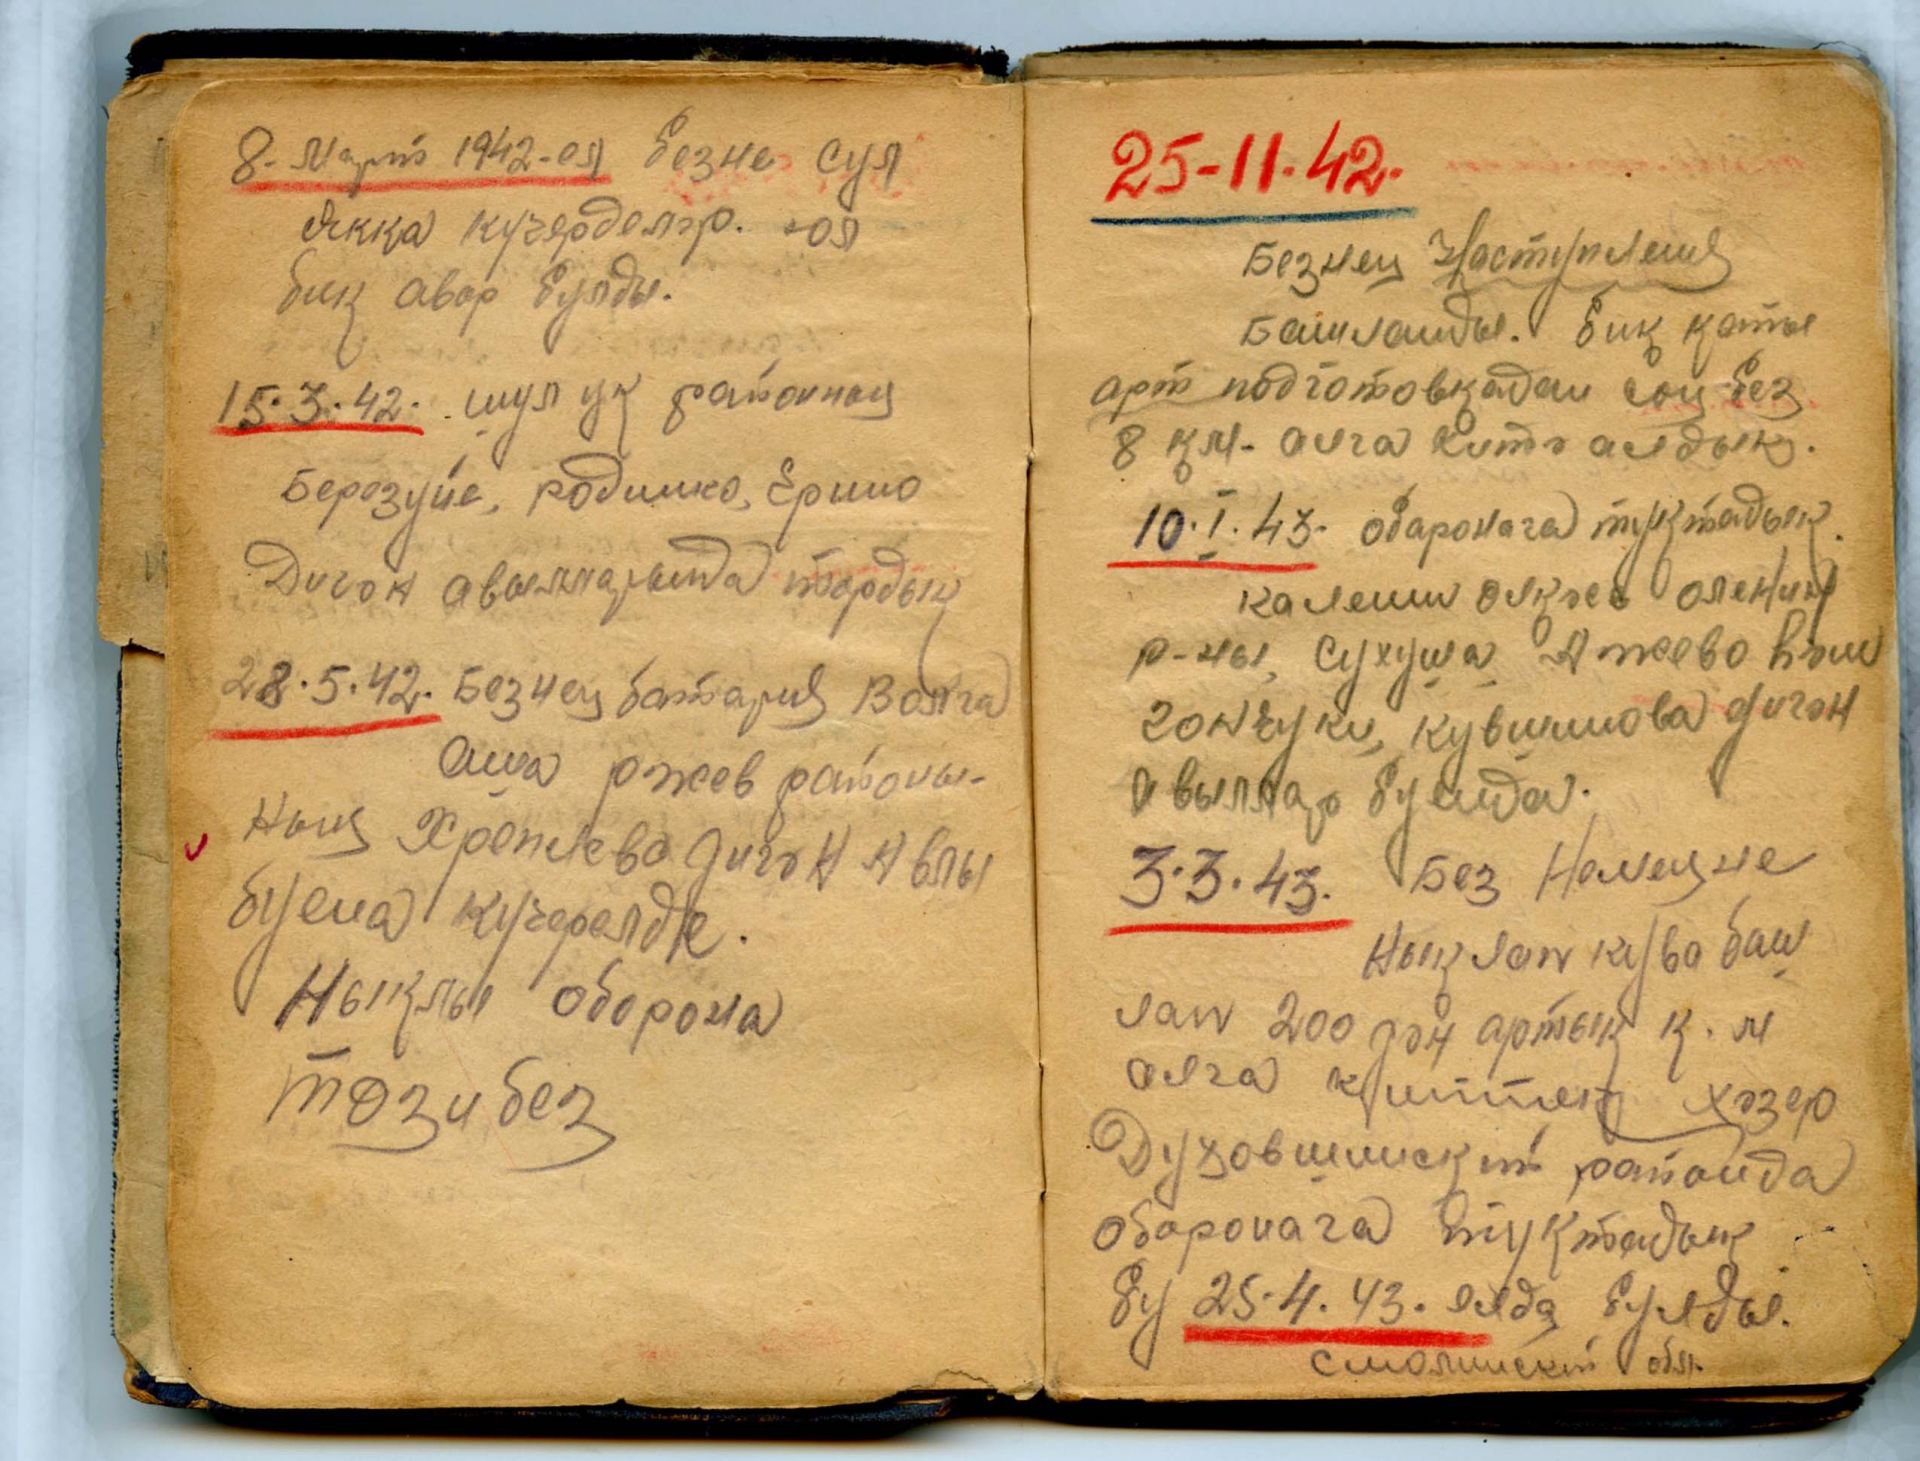 8-Март 1942-ел безне сул
якка күчерделәр. юл
бик авор булды.
15.3.42. шул ук районның
Березуйе, Родинко, Ерино
Дигән авылларында тордык
28.5.42. Безнең батария Волга
аша ржев районы-
ның Хреплево дигән авлы
буена күчерелде.
Ныклы оборона
төзибез
25-11.42.
Безнең Наступления
Башланды. бик каты
арт подготовкадан соң без
8 км- алга китә алдык.
10.I.43. оборонага туктадык.
каленин өлкәсе оленин
р-ны, Сухуша Ажево һәм
гончуки, кувшинова дигән
авыллар буенда.
3.3.43. Без Немецне
Ныклап кува баш
лап 200 дән артык к.м
алга киттек хәзер
Духовшинский районда
оборонага туктадык
бу 25.4.43. елда булды.
смоленский обл.